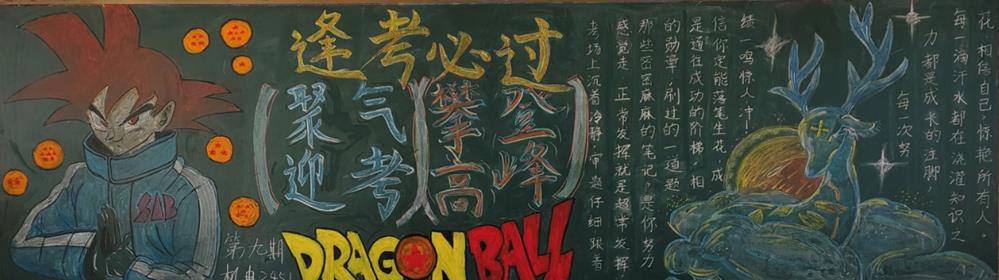 逢考必过
聚气
迎考
攀登
高峰
DRAGON BALL
SAB
第九期
机电2451
考场上沉着冷静,审题仔细跟着
感觉走,正常发挥就是超常发挥
那些密密麻麻的笔记,是你努力
的勋章,刷过的一道题
是通往成功的阶梯,相
信你定能落笔生花,成
绩一鸣惊人冲!
每一次努
力都是成长的注脚,
每一滴汗水都在浇灌知识之
花,相信自己,惊艳所有人。